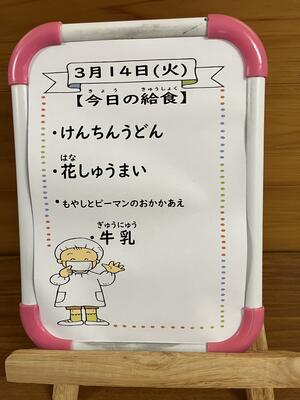 3月14日(火)
きょう きゅうしょく
【今日の給食】
・けんちんうどん
はな
・花しゅうまい
・もやしとピーマンのおかかあえ
ぎゅうにゅう
・牛乳